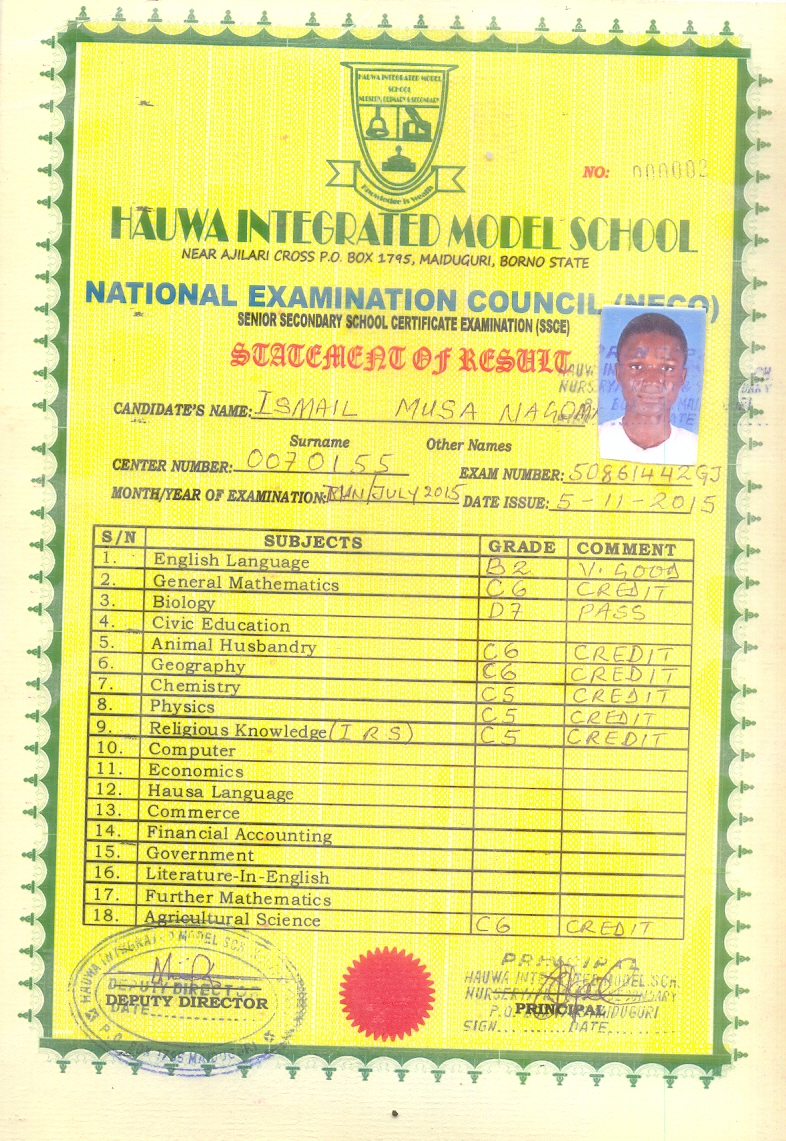 HAUWA INTEGRATED MODEL
SCHOOL
NURSERY, PRIMARY & SECONDARY
Knowledge is Wealth
NO: 000002
HAUWA INTEGRATED MODEL SCHOOL
NEAR AJILARI CROSS P.O. BOX 1795, MAIDUGURI, BORNO STATE
NATIONAL EXAMINATION COUNCIL (NECO)
SENIOR SECONDARY SCHOOL CERTIFICATE EXAMINATION (SSCE)
STATEMENT OF RESULT
CANDIDATE'S NAME: ISMAIL MUSA
Surname Other Names
CENTER NUMBER: 0070155 EXAM NUMBER: 50861442GJ
MONTH/YEAR OF EXAMINATION: JUN/JULY 2015 DATE ISSUE: 5-11-2015
S/N SUBJECTS GRADE COMMENT
1. English Language B2 V. GOOD
2. General Mathematics C6 CREDIT
3. Biology D7 PASS
4. Civic Education
5. Animal Husbandry C6 CREDIT
6. Geography C6 CREDIT
7. Chemistry C5 CREDIT
8. Physics C5 CREDIT
9. Religious Knowledge (IRS) C5 CREDIT
10. Computer
11. Economics
12. Hausa Language
13. Commerce
14. Financial Accounting
15. Government
16. Literature-In-English
17. Further Mathematics
18. Agricultural Science C6 CREDIT
HAUWA INTEGRATED MODEL SCH
DEPUTY DIRECTOR
DEPUTY DIRECTOR
DATE
P.O. BOX 1795 MAIDUGURI
PRINCIPAL
HAUWA INTEGRATED MODEL SCH.
PRINCIPAL
MAIDUGURI
SIGN......DATE......